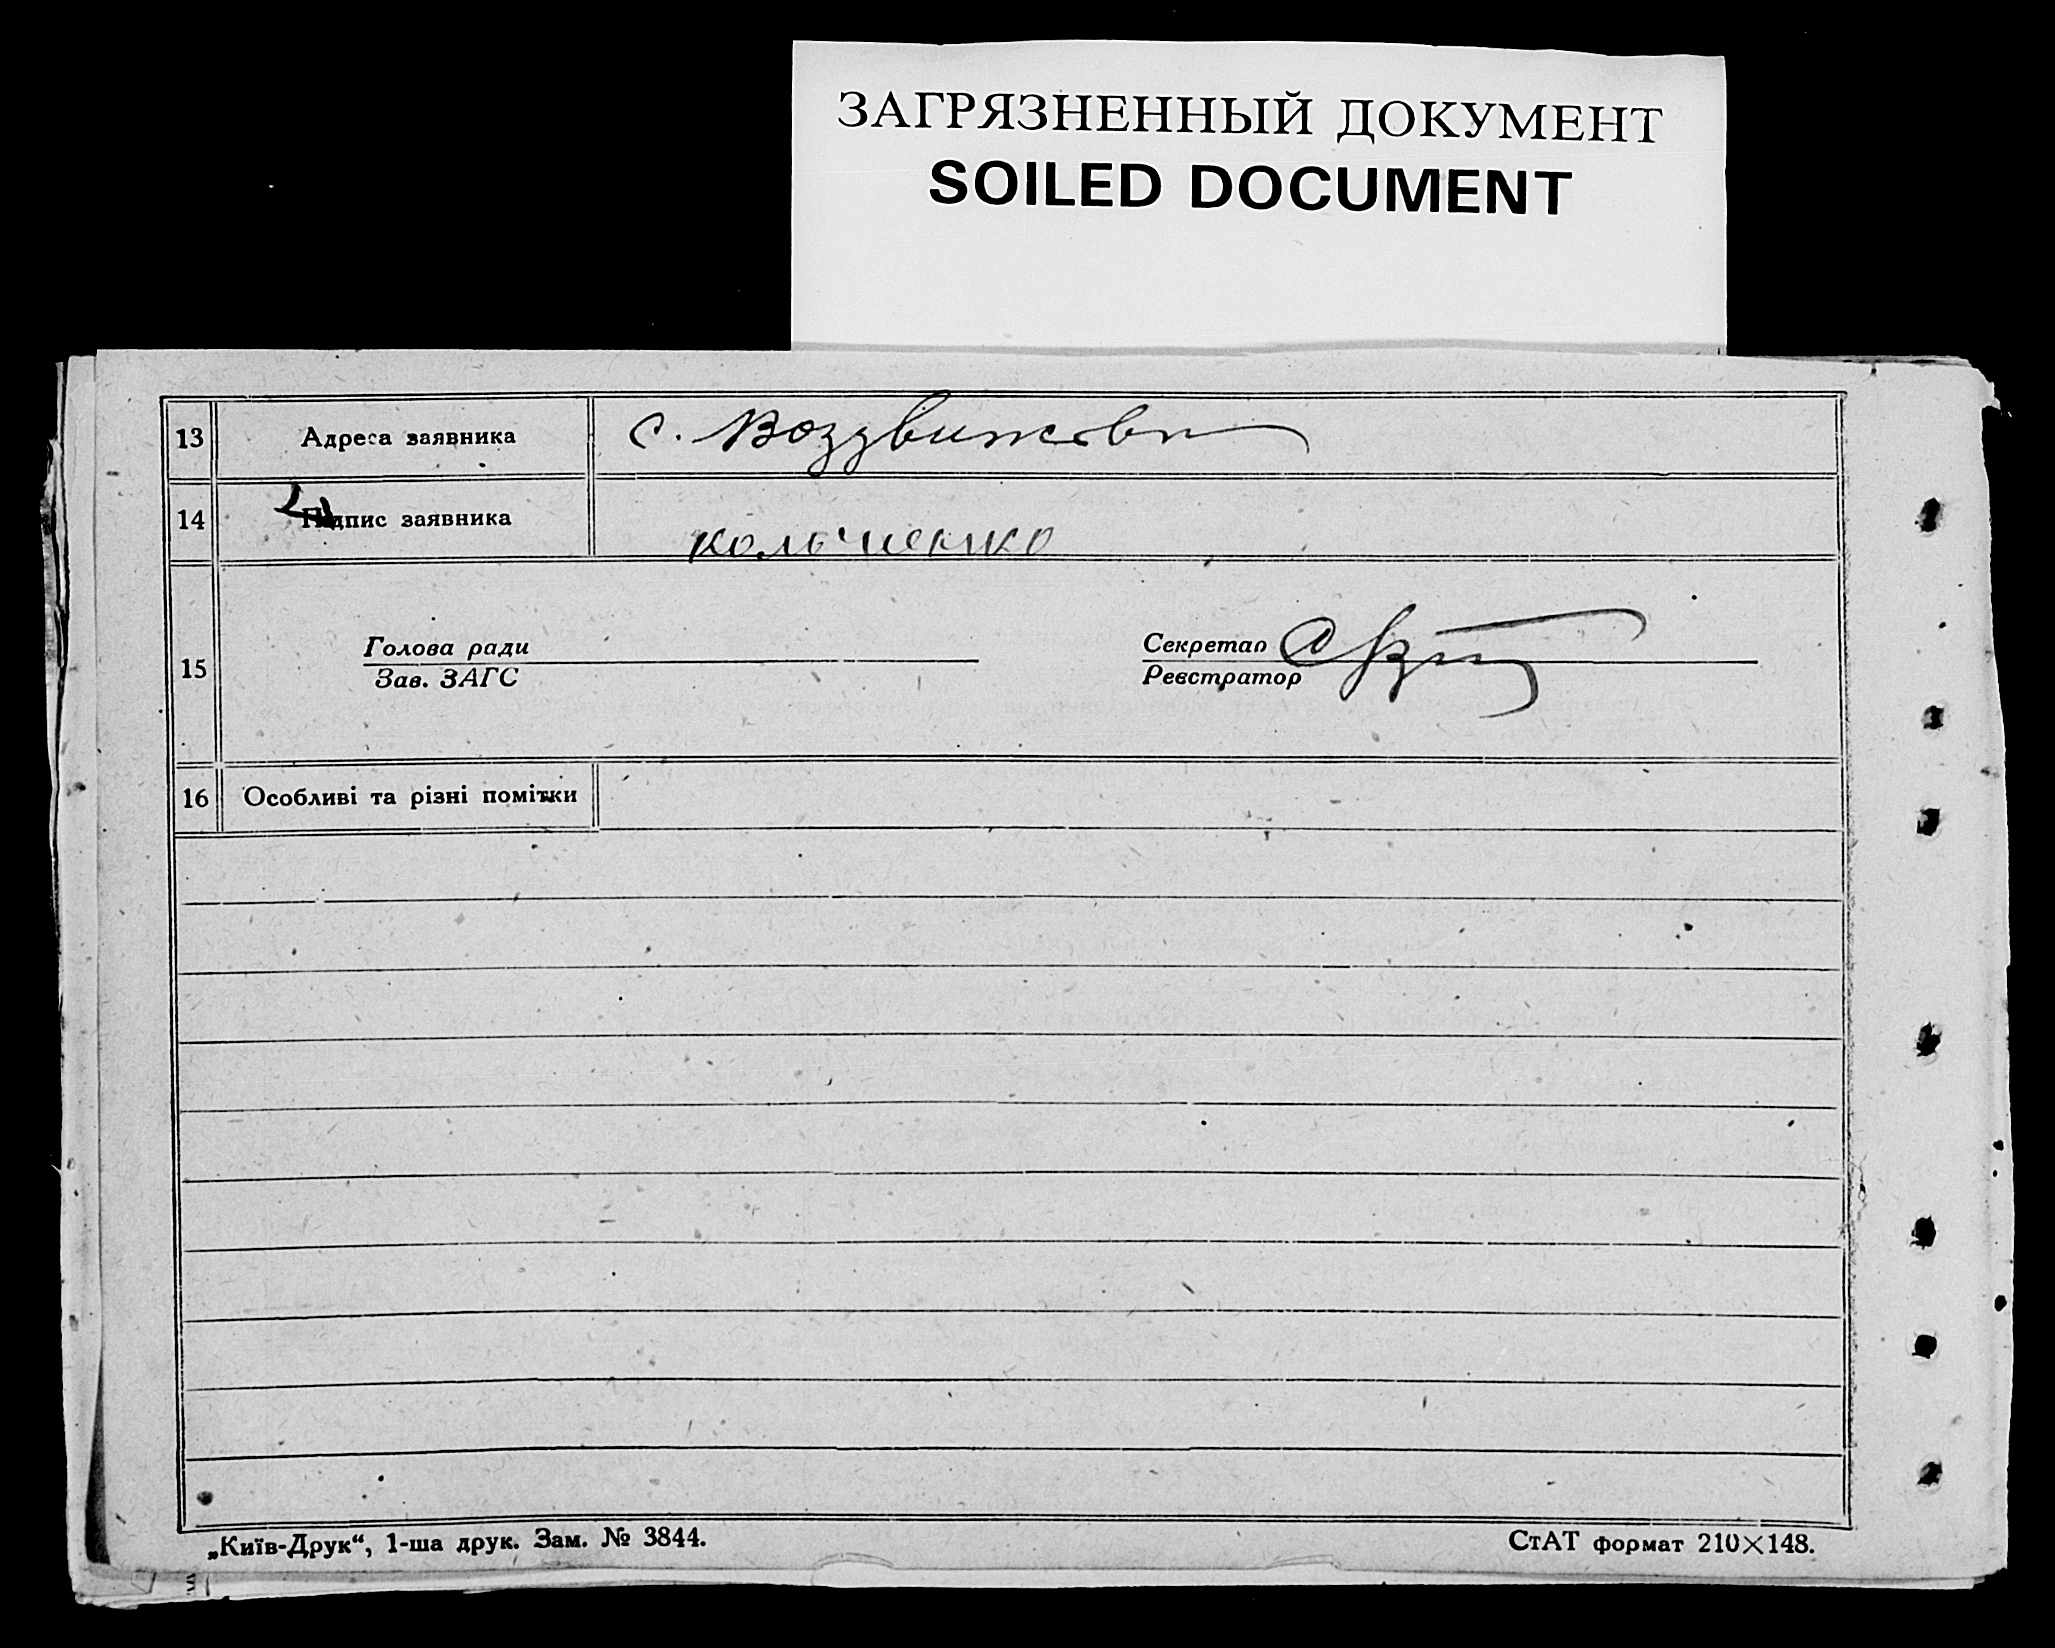 ЗАГРЯЗНЕННЫЙ ДОКУМЕНТ
SOILED DOCUMENT
13 Адреса заявника с. Воздвижовка
14 Підпис заявника Кольченко
Голова ради Секретар
15
Зав. ЗАГС Реєстратор
16 Особливі та різні помітки
„Київ-Друк“, 1-ша друк. Зам. № 3844. СтАТ формат 210×148.